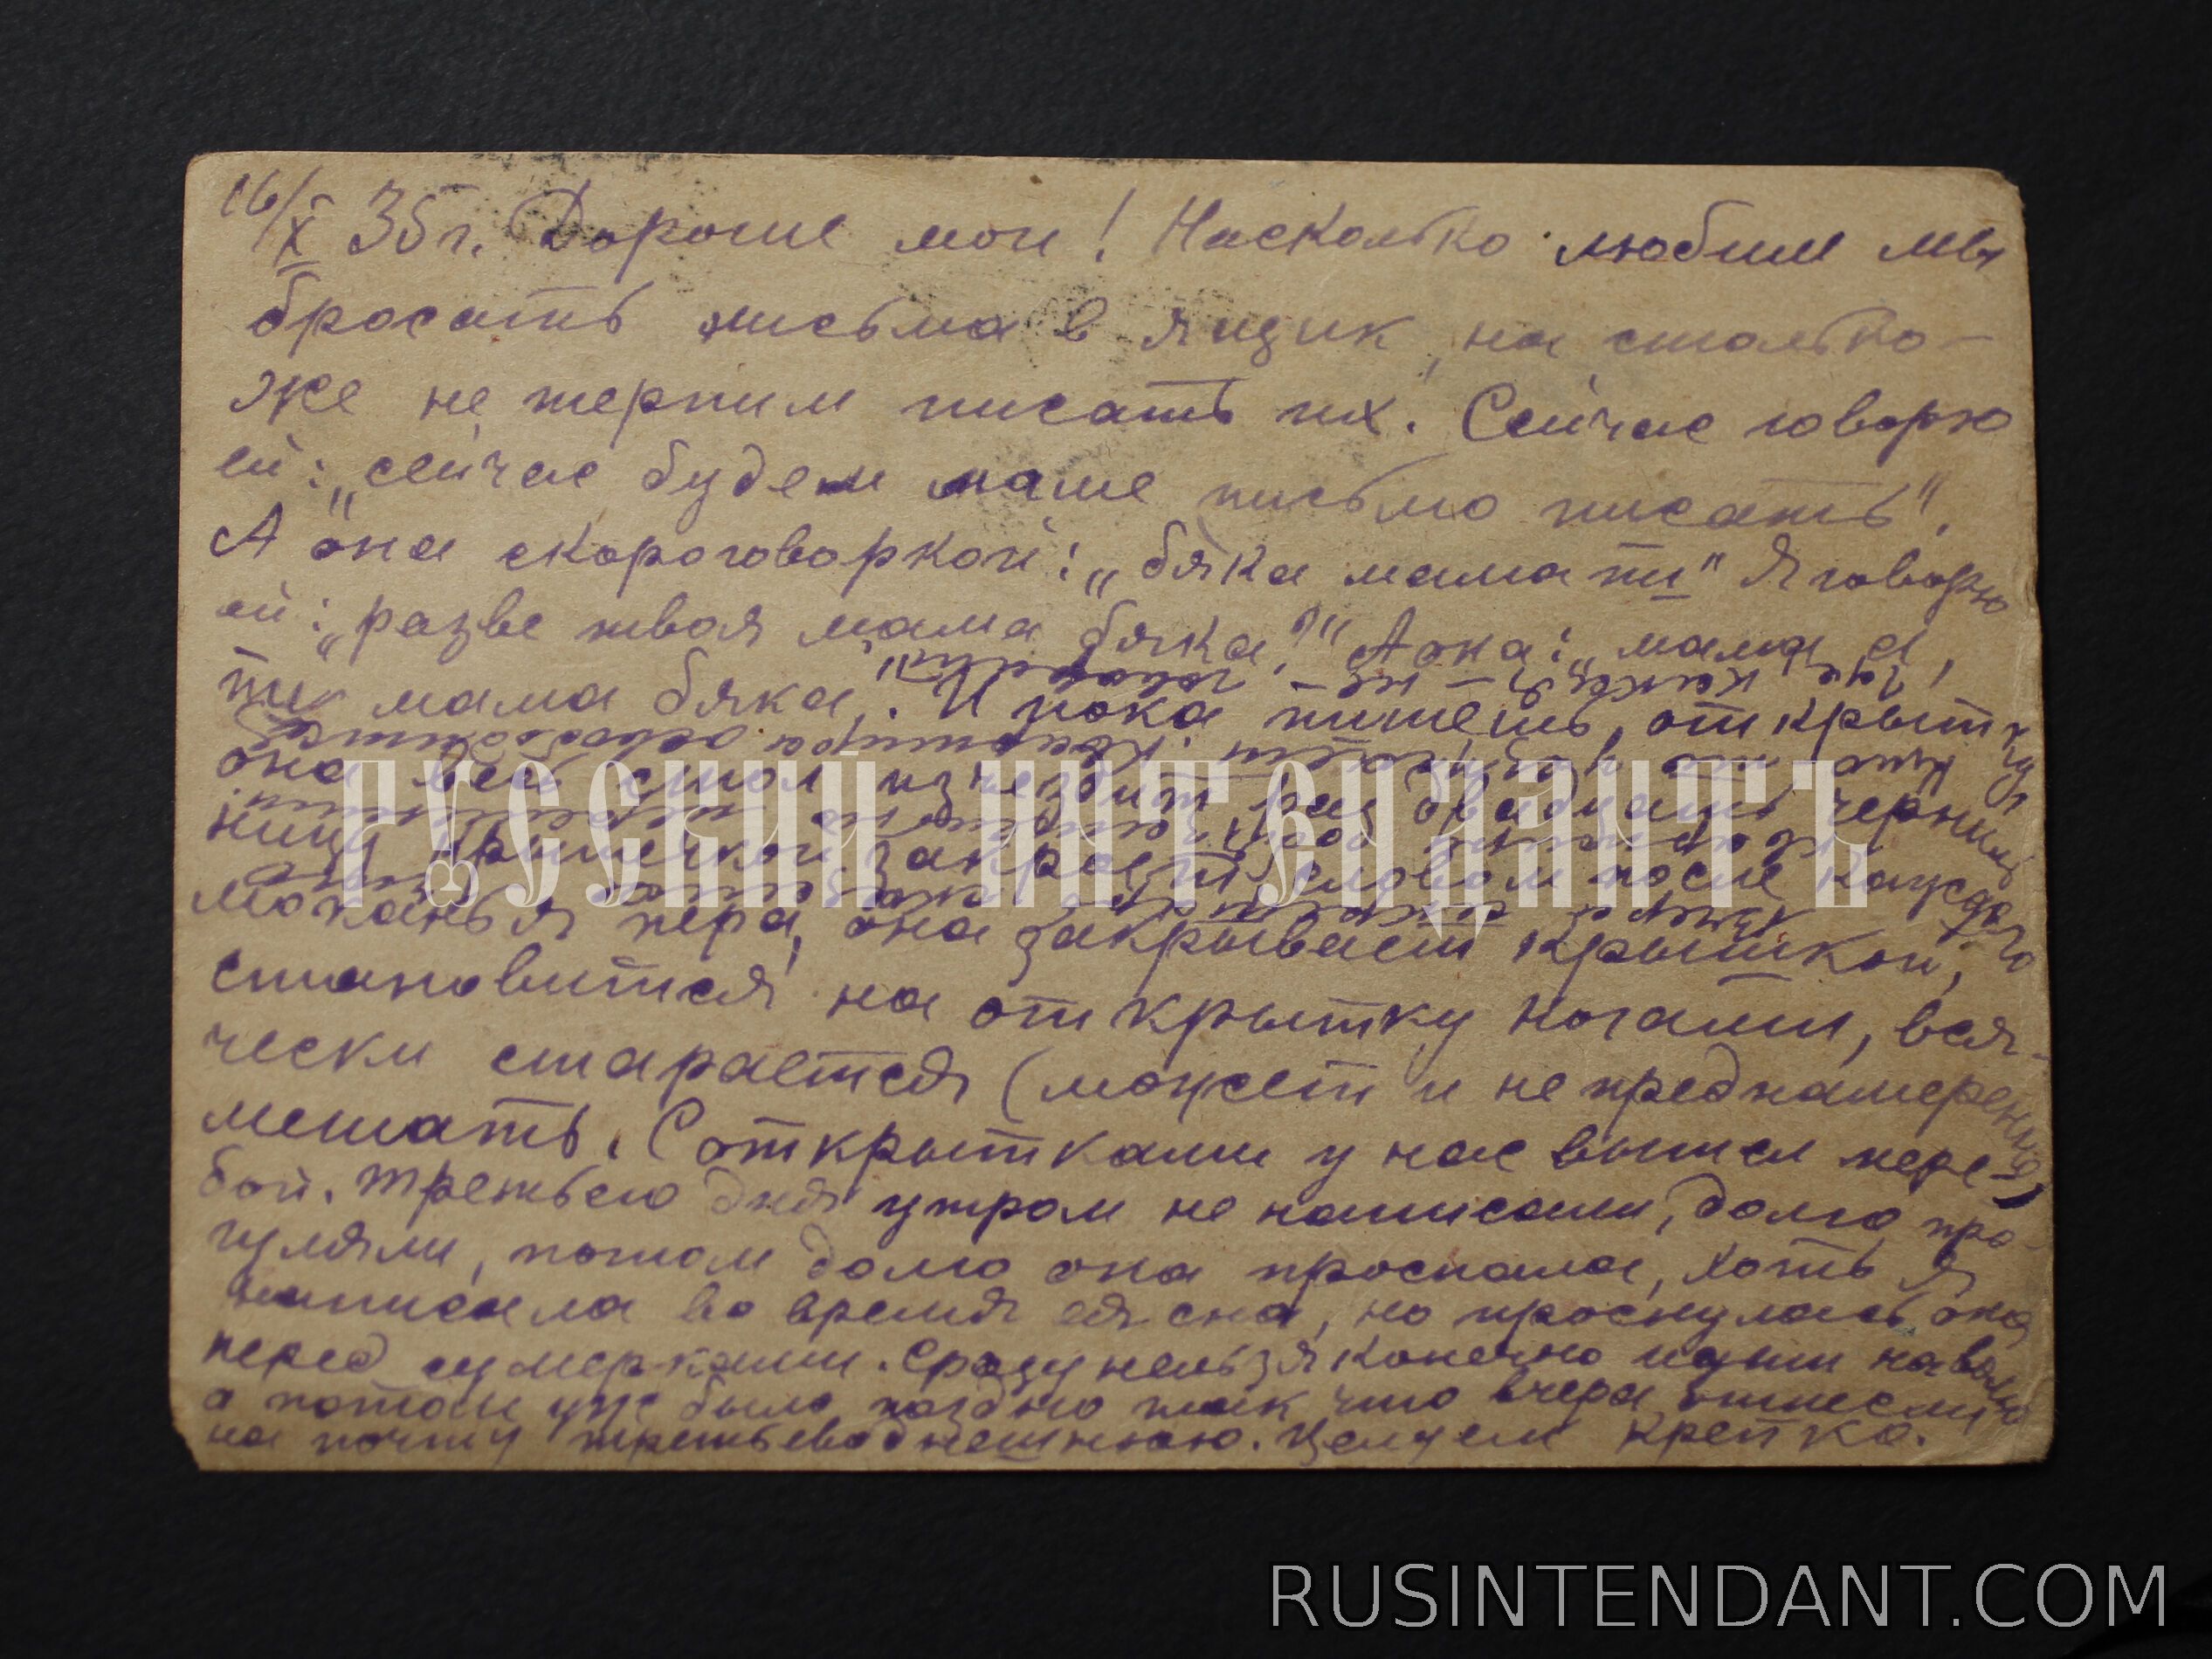 16/X 35 г. Дорогие мои! Насколько любим мы
бросать письма в ящик, на столько-
же не терпим писать их. Сейчас говорю
ей: „сейчас будем маме письмо писать".
А она скороговоркой: „бяка мама ти" Я говорю
ей: „разве твоя мама бяка?" А она: „мама а,
ти мама бяка". И пока пишешь, открытку
она весь стол изъездит, раз двадцать черниль
ницу крышечкой закроет, словом после каждого
маканья пера, она закрывает крышкой,
становится на открытку ногами, вся-
чески старается (может и не преднамеренно)
мешать. С открытками у нас вышел пере-
бой. Третьего дня утром не написали, долго про-
гуляли, потом долго она проспала, хоть я
написала во время ея сна, но проснулась она
перед сумерками. Сразу нельзя конечно идти на волю
а потом уже было поздно так что вчера отнесли
на почту третьеводнешнюю. Целуем крепко.
РУССКИЙ ИНТЕНДАНТЪ
RUSINTENDANT.COM